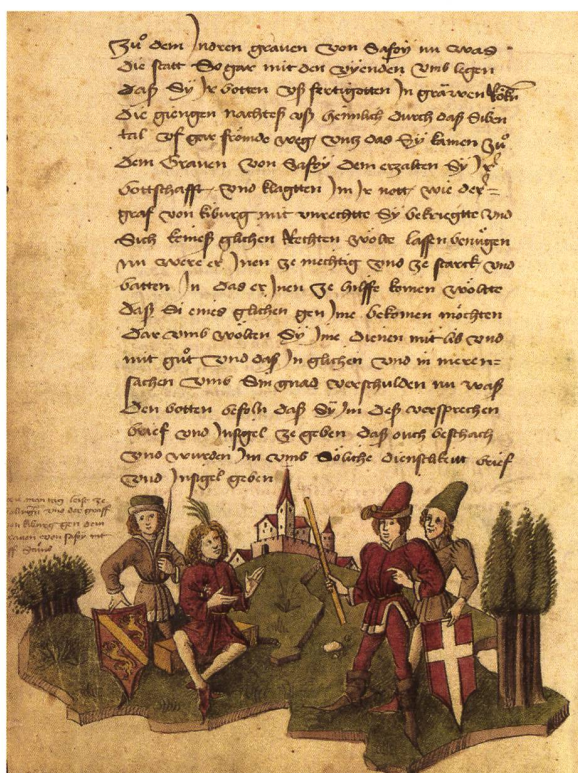 Zuͦ dem Jndren graven von Safoÿ nu was
die statt So gar mit den vÿenden vmb legen
daß Sÿ Jr botten vß fertigotten Jn gräwen Röken
die giengen nachteß vß heimlich durch daß Siben
tal vf gar frömde weg vntz das Sÿ kamen Zuͦ
dem Graven von Safoÿ dem erzalten Sÿ Jr
bottschafft vnd klagtten Jm Jr nott wie der
graf von kiburg mit vnrechtte Sÿ bekriegtte vnd
Sich keineß glichen Rechten wolte lassen benuͤgen
nu were er Jnen ze mechtig vnd ze starck vnd
batten Jn das er Jnen ze hilffe komen wöltte
daß Si eines glichen gen Jme bekomen möchten
dar vmb wölten Sÿ Jme dienen mit lib vnd
mit guͦt vnd daß Jn glichen vnd in meren-
sachen vmb Sin gnad verschulden nu waß
den botten befoln daß Sÿ Jm deß versprechen
brief vnd Jnsigel ze geben daß ouch beschach
vnd wurden Jm vmb Söliche dienschkeitt brief
vnd Jnsigel geben
man tag leist ze
vnd der graff
kiburg gen dem
graven von safoy mit